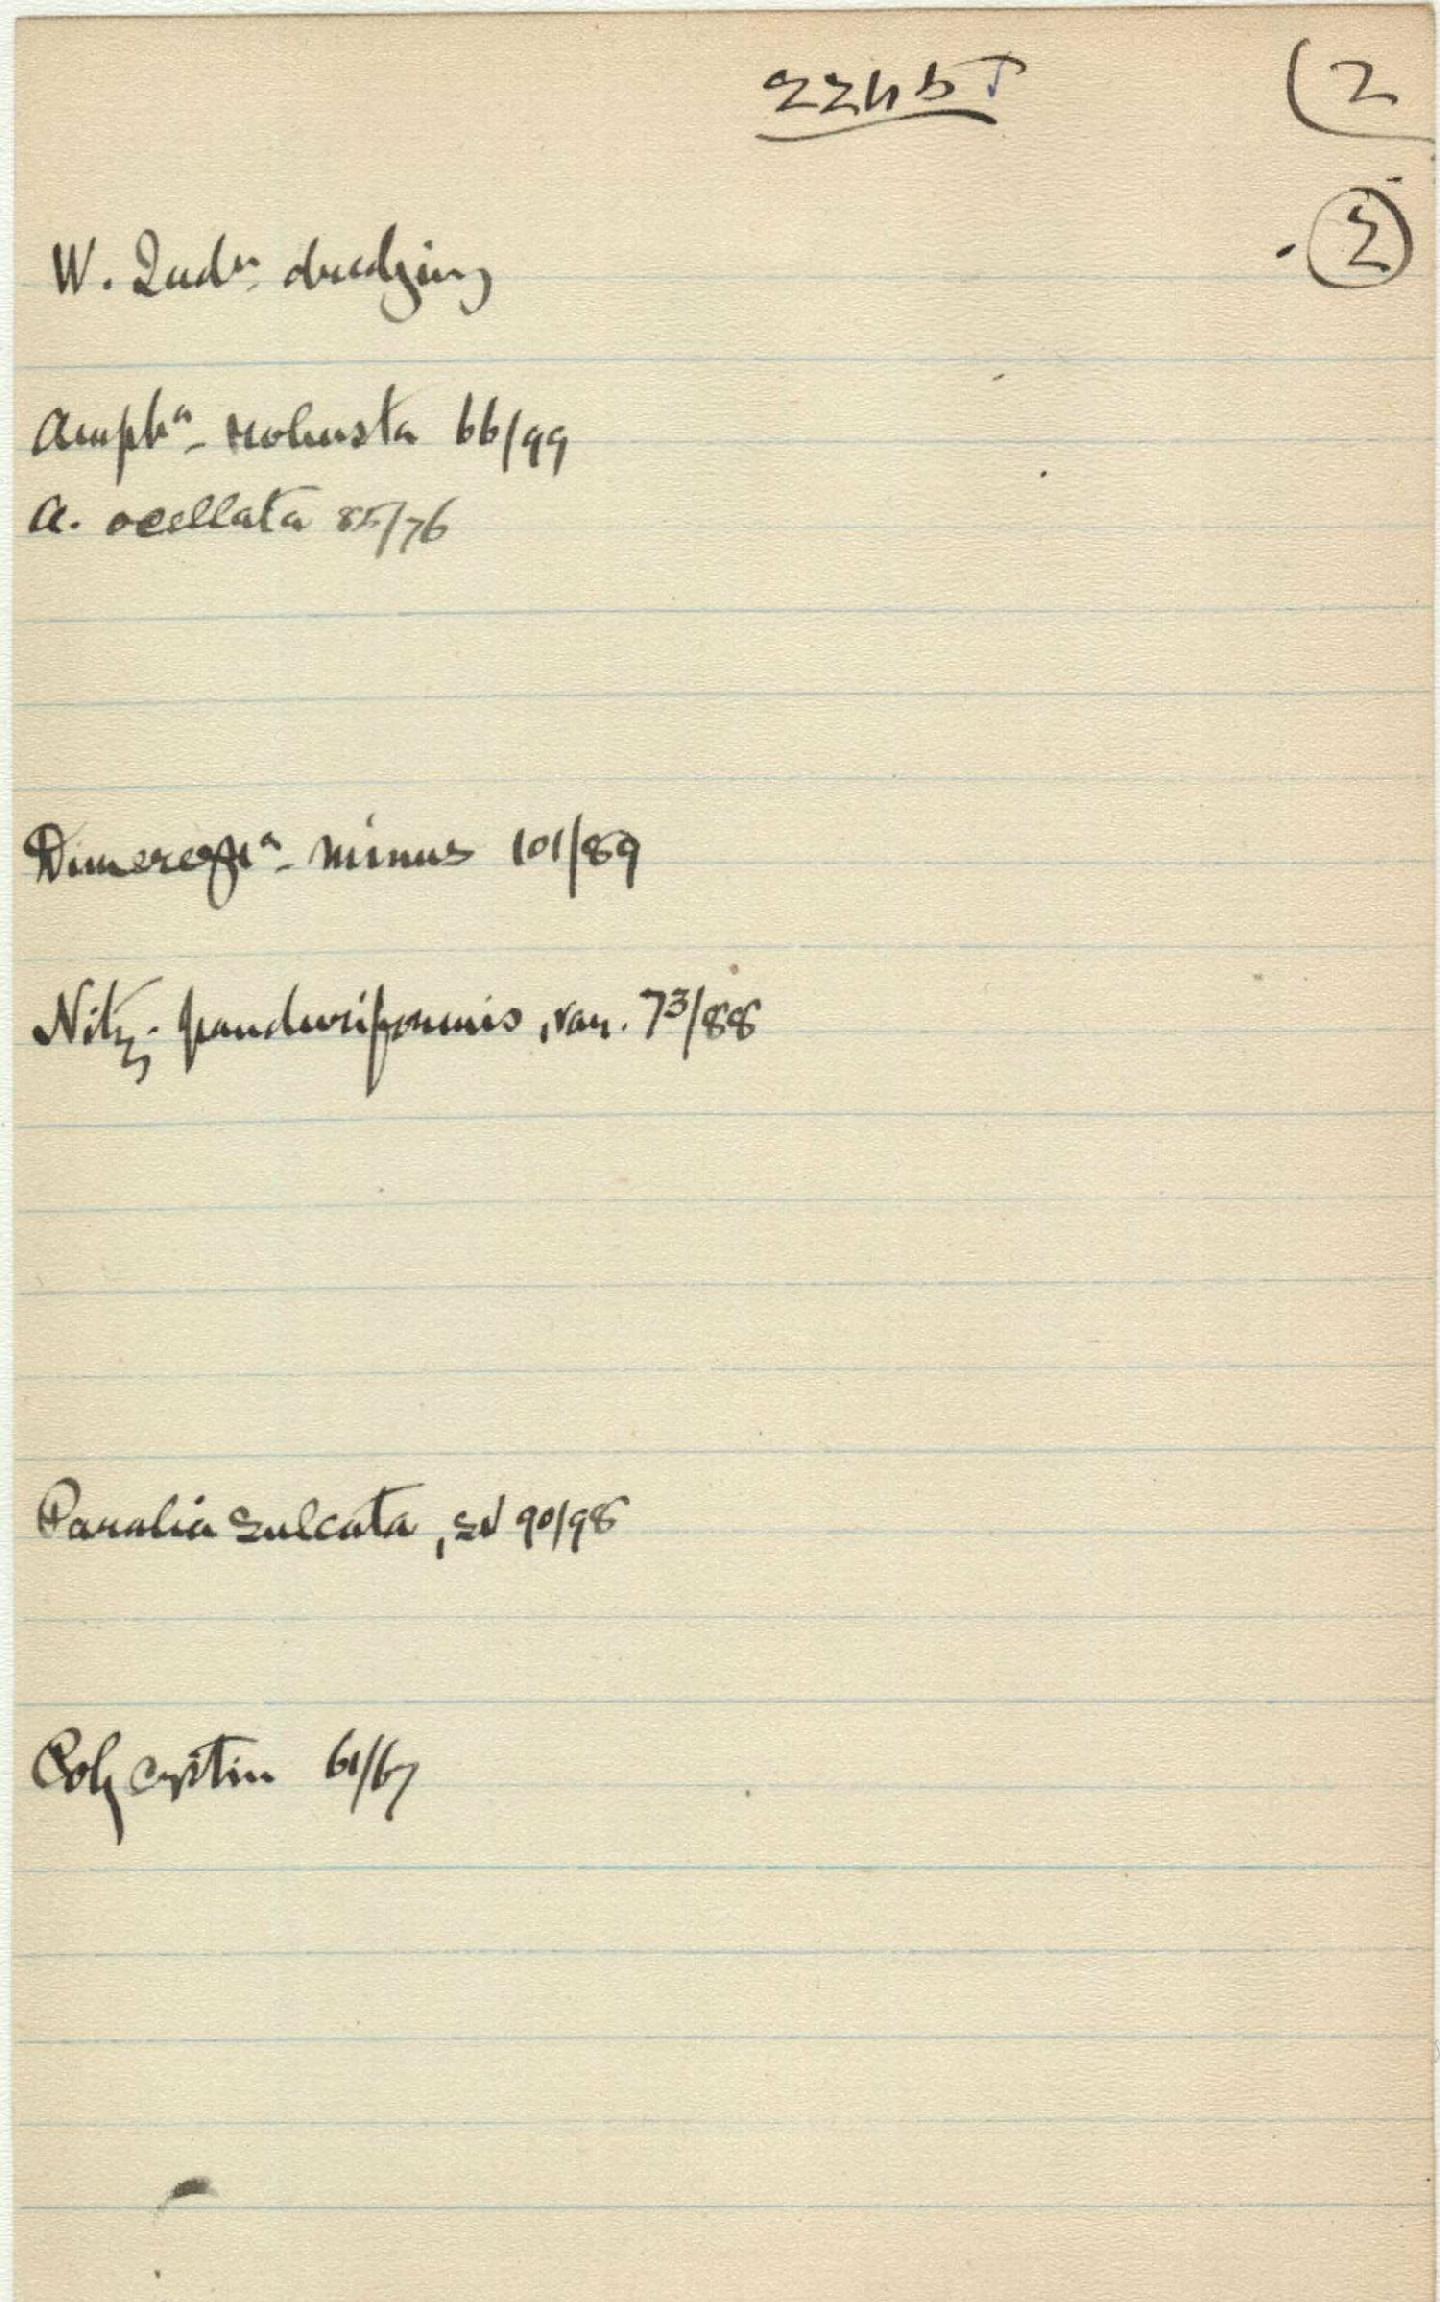 2245 (2
(2)
W. Indn. dredging
Amph^a. robusta 66/99
A. ocellata 85/76
Dimeregr^a. minus 101/89
Nitz. panduriformis, var. 73/88
Paralia sulcata, sv 90/98
Polycystin 61/67